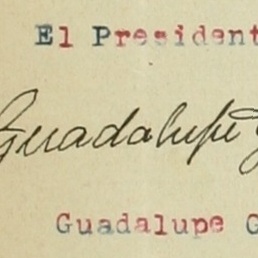 El President
Guadalupe G
Guadalupe G